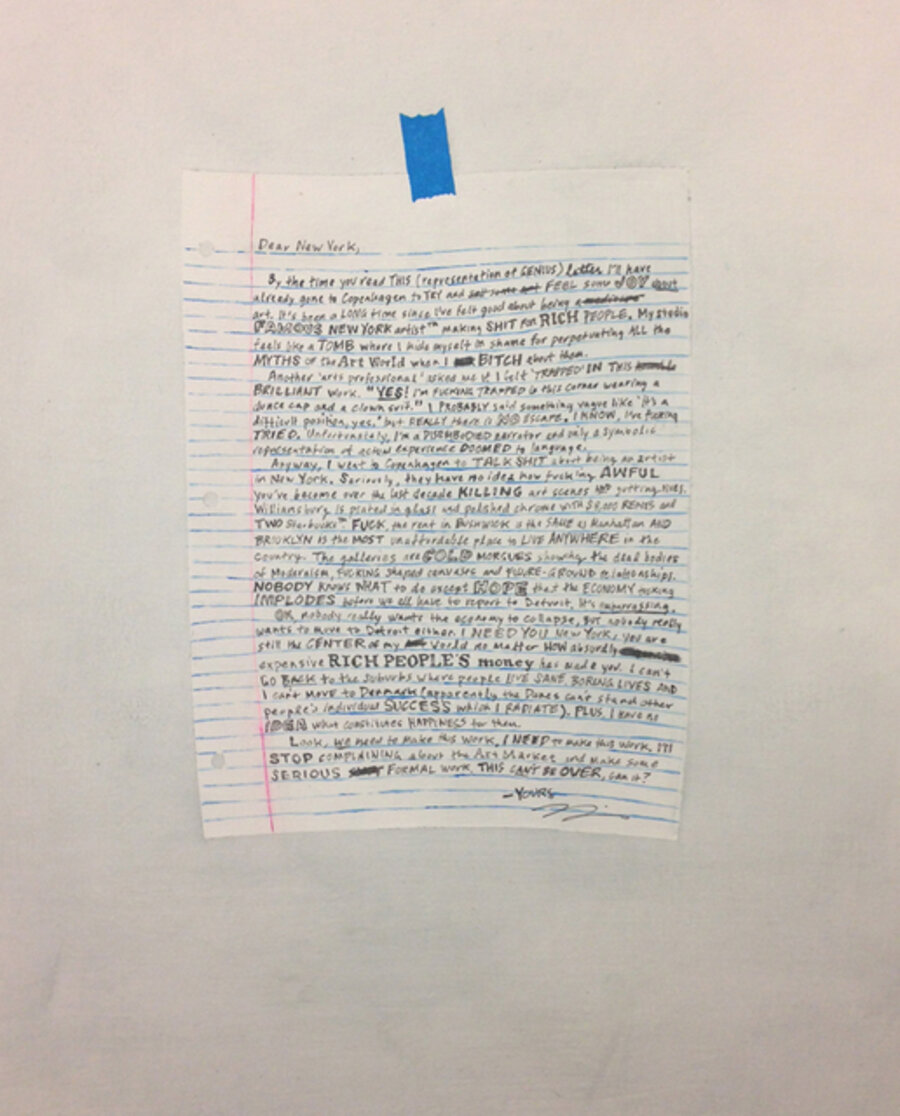 Dear New York,
By the time you read THIS (representation of GENIUS) letter I'll have
already gone to Copenhagen to TRY and FEEL some JOY about
art. It's been a LONG time since I've felt good about being a mediocre
FAMOUS NEW YORK artist™ making SHIT for RICH PEOPLE. My studio
feels like a TOMB where I hide myself in shame for perpetuating ALL the
MYTHS of the Art World when I BITCH about them.
Another 'arts professional' asked me if I felt 'TRAPPED' IN THIS horrible
BRILLIANT work. "YES! I'm FUCKING TRAPPED in this corner wearing a
dunce cap and a clown suit." I PROBABLY said something vague like "it's a
difficult position, yes," but REALLY there is NO ESCAPE. I KNOW, I've fucking
TRIED. Unfortunately, I'm a DISEMBODIED narrator and only a symbolic
representation of actual experience DOOMED to language.
Anyway, I went to Copenhagen to TALK SHIT about being an artist
in New York. Seriously, they have no idea how fucking AWFUL
you've become over the last decade KILLING art scenes AND gutting
Williamsburg is plated in glass and polished chrome with $8,000 RENTS and
TWO Starbucks™. FUCK, the rent in BUSHWICK is the SAME as Manhattan AND
BROOKLYN is the MOST unaffordable place to LIVE ANYWHERE in the
country. The galleries are COLD MORGUES showing the dead bodies
of Modernism, FUCKING shaped canvases and FIGURE-GROUND relationships.
NOBODY knows WHAT to do except HOPE that the ECONOMY fucking
IMPLODES before we all have to report to Detroit. It's embarrassing.
OK, nobody really wants the economy to collapse, but nobody really
wants to move to Detroit either. I NEED YOU New York. You are
still the CENTER of my Art World no matter HOW absurdly expensive
expensive RICH PEOPLE'S money has made you. I can't
GO BACK to the suburbs where people LIVE SANE, BORING LIVES AND
I can't move to Denmark (apparently the Danes can't stand other
people's individual SUCCESS which I RADIATE). PLUS, I have no
IDEA what constitutes HAPPINESS for them.
Look, we need to make this work. I NEED to make this work. I'll
STOP complaining about the Art Market and make some
SERIOUS FORMAL work. THIS CAN'T BE OVER, can it?
—YOURS